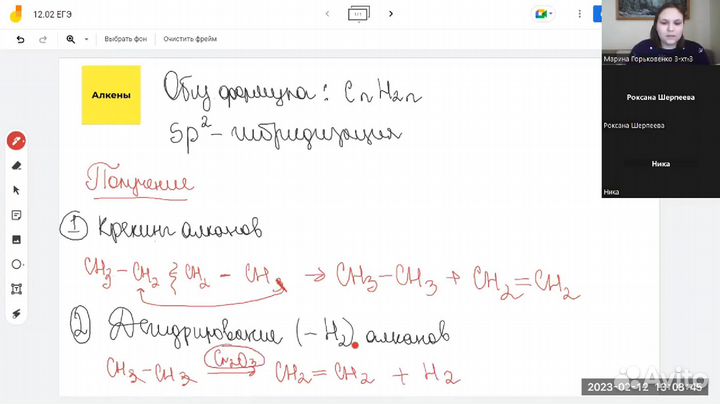 12.02 ЕГЭ
1/1
Выбрать фон
Очистить фрейм
Марина Горьковенко 3-хтн3
Роксана Шерпеева
Роксана Шерпеева
Ника
Ника
Алкены
Общ формула: CnH2n
sp²-гибридизация
Получение
1 Крекинг алканов
CH3-CH2 CH2-CH3 → CH3-CH3 + CH2=CH2
2 Дегидрирование (-H2) алканов
CH3-CH3 Cr2O3 CH2=CH2 + H2
2023-02-12 13:08:45
Avito